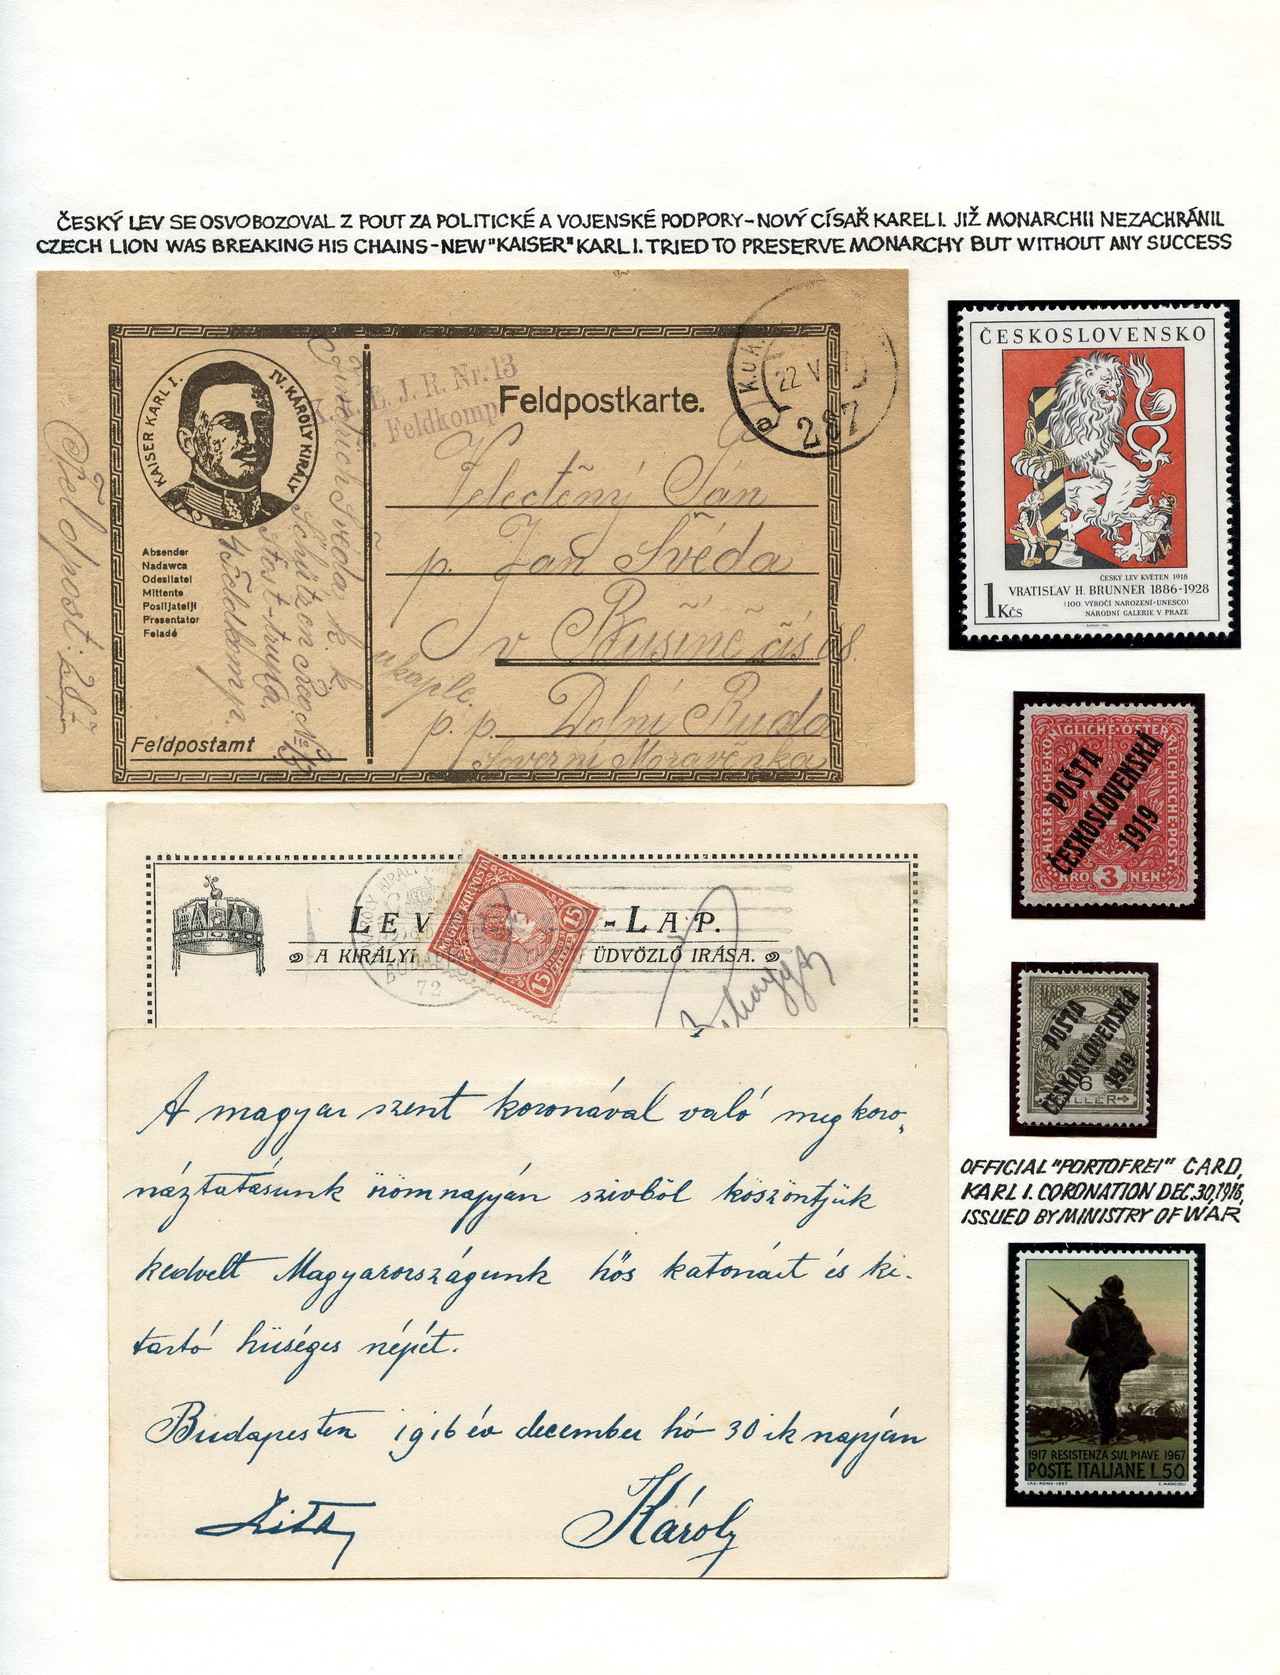 ČESKÝ LEV SE OSVOBOZOVAL Z POUT ZA POLITICKÉ A VOJENSKÉ PODPORY – NOVÝ CÍSAŘ KAREL I. JIŽ MONARCHII NEZACHRÁNIL
CZECH LION WAS BREAKING HIS CHAINS – NEW "KAISER" KARL I. TRIED TO PRESERVE MONARCHY BUT WITHOUT ANY SUCCESS
KAISER KARL I.
IV. KÁROLY KIRÁLY
J. R. Nr. 13
Feldkomp
Feldpostkarte.
K.u.K.
22 V
a
287
Absender
Nadawca
Odesilatel
Mittente
Posiljatelji
Presentator
Feladó
Feldpostamt
Švéda, k. k.
Feldkomp.
Feldpost: 287
Velectěný Pán
p. Jan Švéda
v Bušíně čís 28.
p. p. Dolní Ruda
Severní Moravěnka
ČESKOSLOVENSKO
ČESKÝ LEV KVĚTEN 1918
VRATISLAV H. BRUNNER 1886-1928
(100. VÝROČÍ NAROZENÍ-UNESCO)
NÁRODNÍ GALERIE V PRAZE
1 Kčs
KAISERLICHE·KÖNIGLICHE·ÖSTERREICHISCHE·POST
POŠTA
ČESKOSLOVENSKÁ
1919
KRO 3 NEN
LEV -LAP.
A KIRÁLYI ÜDVÖZLŐ IRÁSA.
72
MAGYAR KIR. POSTA
15 15
MAGYAR KIR. POSTA
POŠTA
ČESKOSLOVENSKÁ
1919
6
FILLER
A magyar szent koronával való megkoro-
náztatásunk örömnapján szivből köszöntjük
kedvelt Magyarországunk hős katonáit és ki-
tartó hűséges népét.
Budapesten 1916 év december hó 30 ik napján
Zita Károly
OFFICIAL "PORTOFREI" CARD,
KARL I. CORONATION DEC. 30, 1916,
ISSUED BY MINISTRY OF WAR
1917 RESISTENZA SUL PIAVE 1967
POSTE ITALIANE L.50
I.P.S.-ROMA-1967 E. MANCIOLI